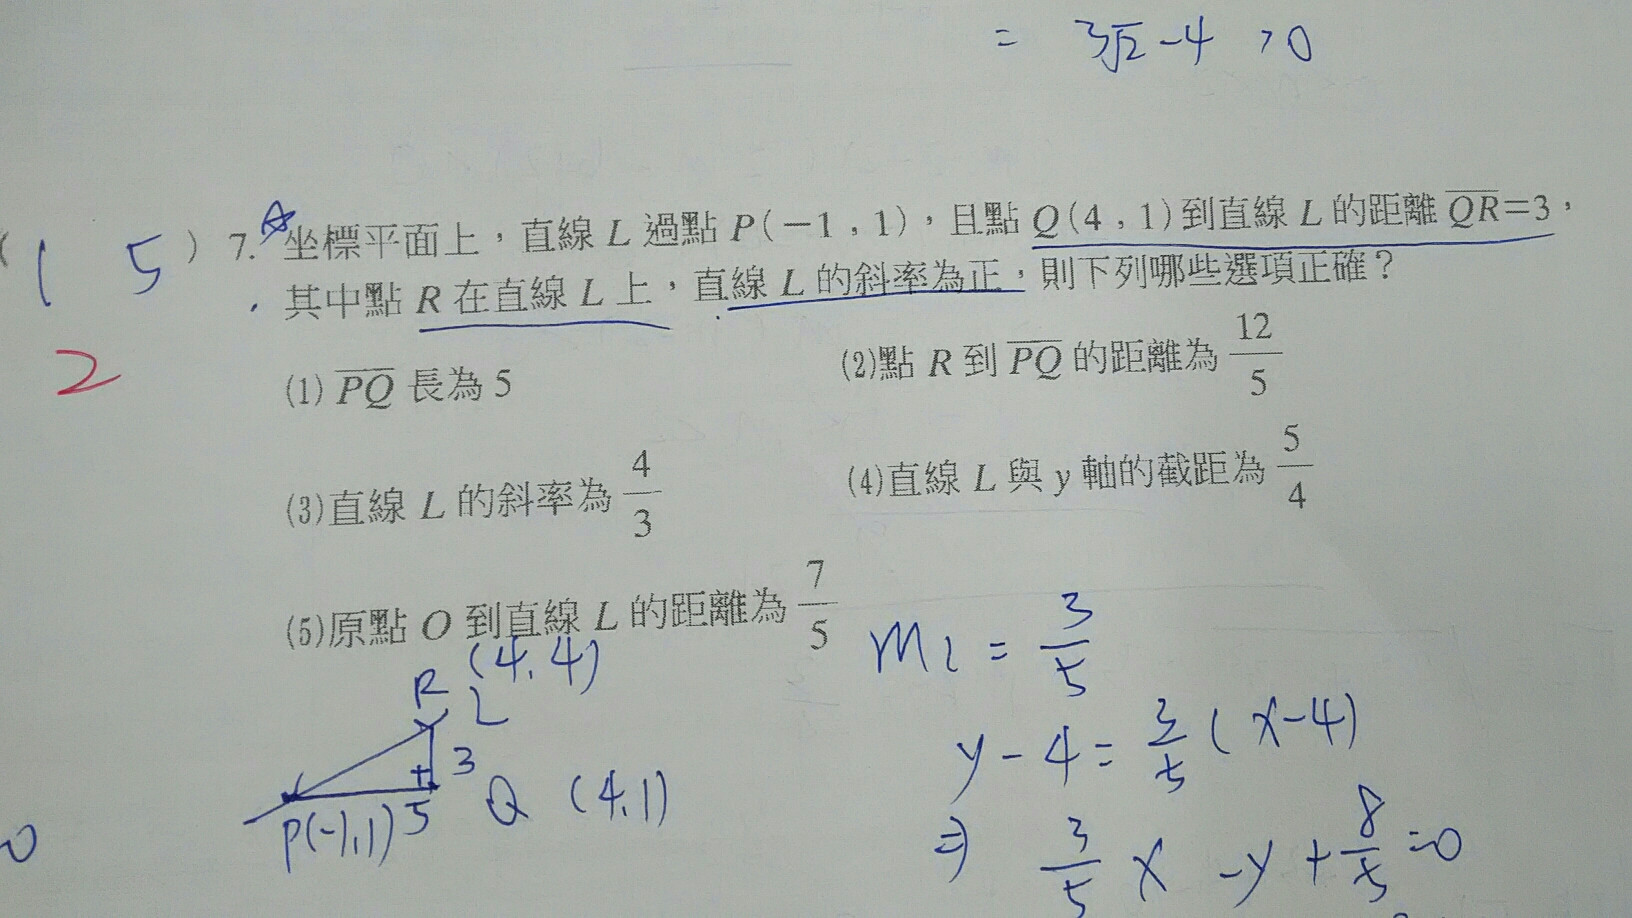 = 3√2 -4 >0
( 1 5 ) 7. ☆坐標平面上，直線 L 過點 P(−1 , 1)，且點 Q(4 , 1)到直線 L 的距離 QR=3，
其中點 R 在直線 L 上，直線 L 的斜率為正，則下列哪些選項正確？
2
(1) PQ 長為 5
(2)點 R 到 PQ 的距離為 12/5
(3)直線 L 的斜率為 4/3
(4)直線 L 與 y 軸的截距為 5/4
(5)原點 O 到直線 L 的距離為 7/5
R (4,4)
L
3
P(-1,1) 5 Q (4,1)
mL = 3/5
y-4= 3/5 (x-4)
⇒ 3/5 x -y + 8/5 =0
0